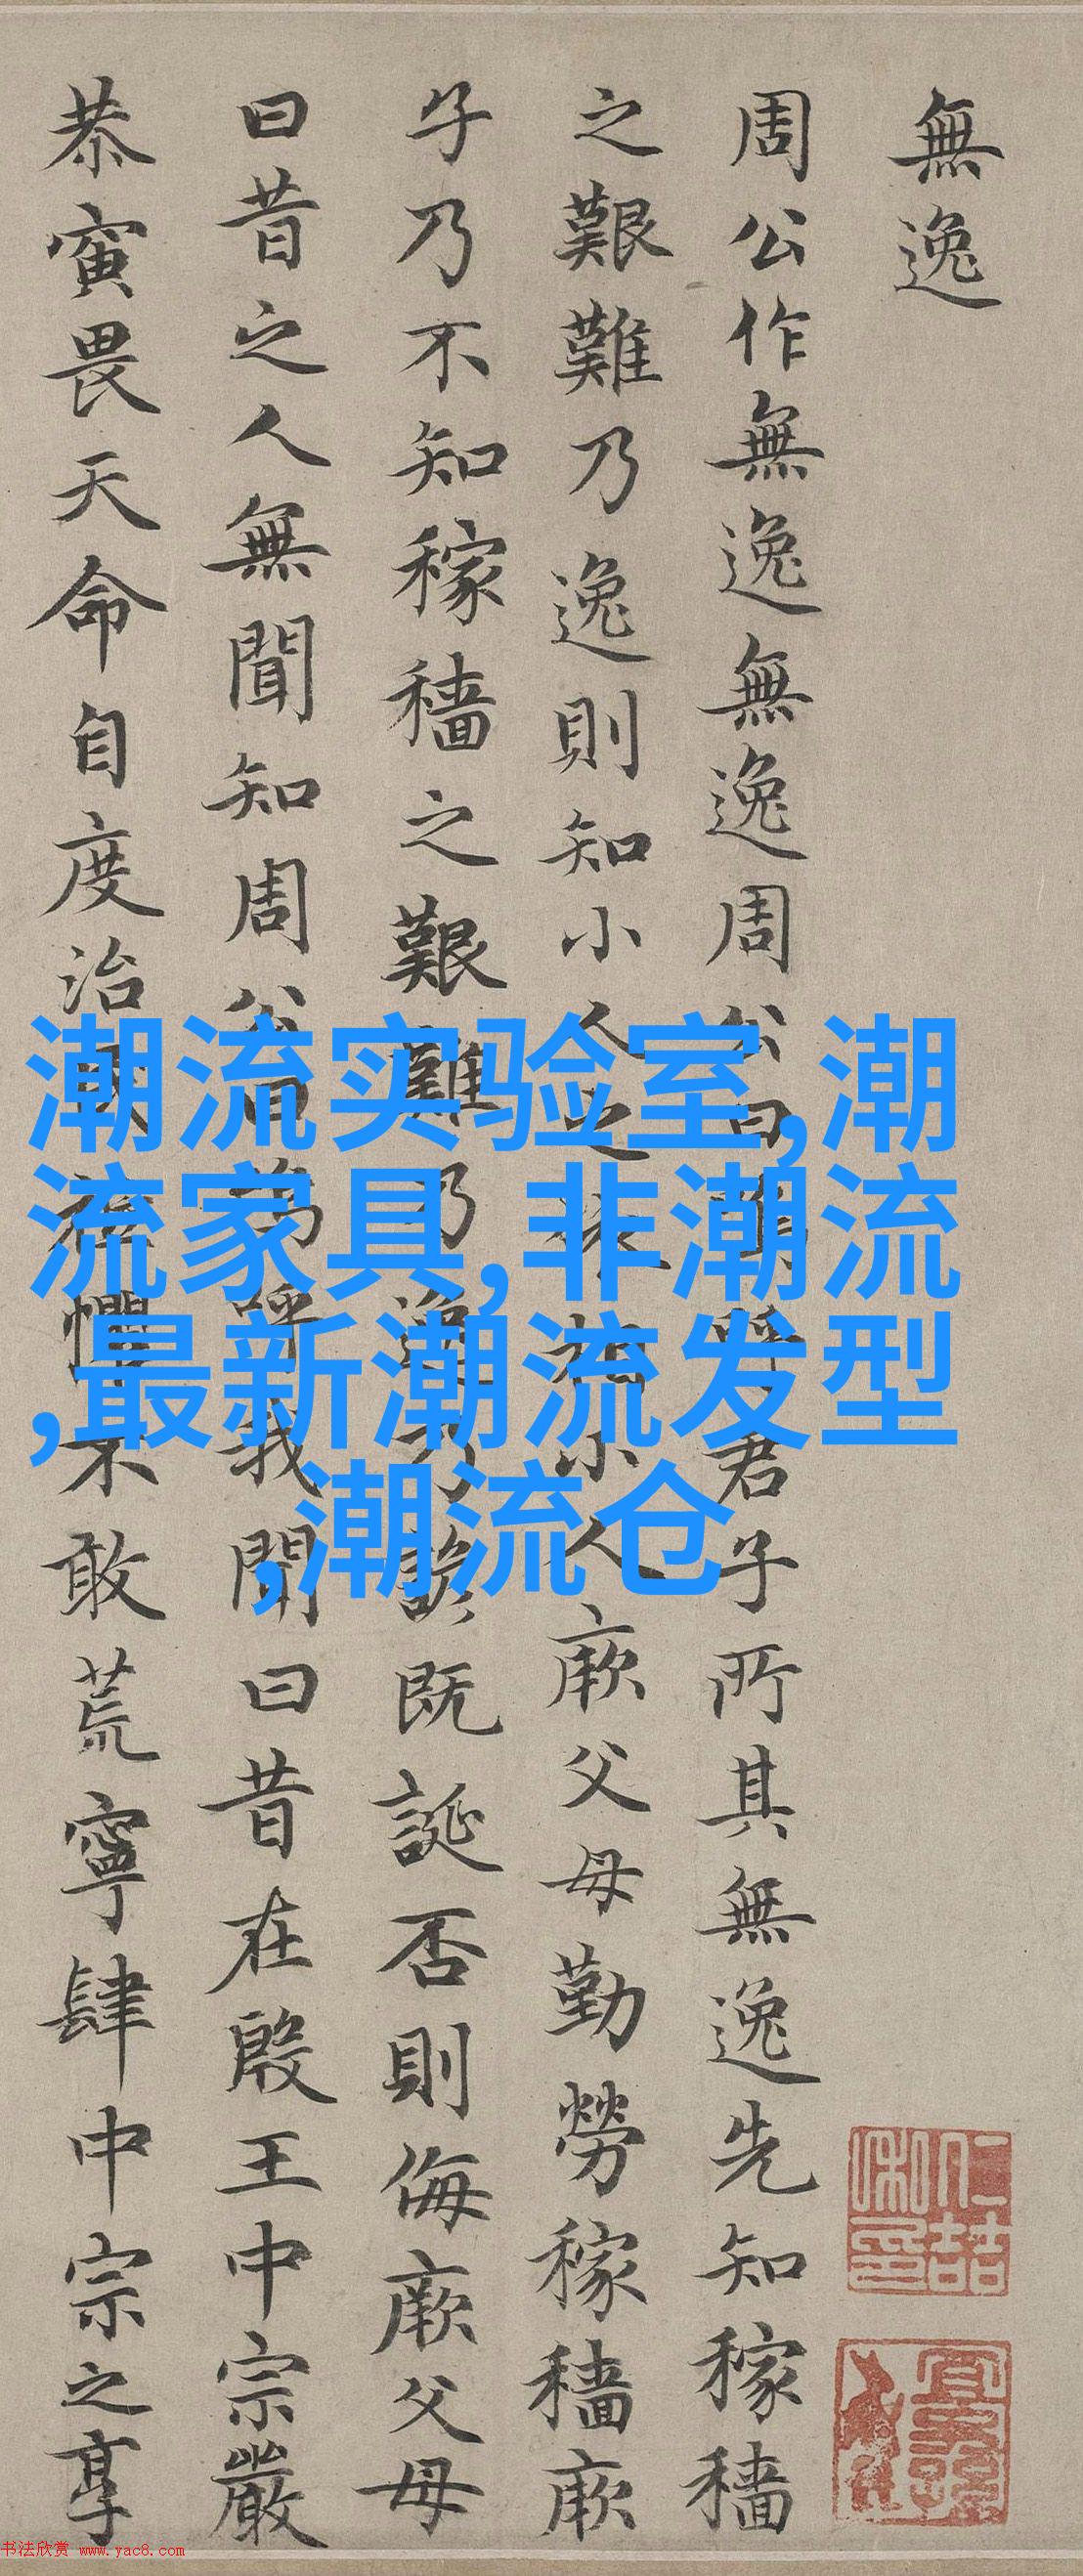 無逸
周公作無逸無逸周公曰嗚呼君子所其無逸先知稼穡
之艱難乃逸則知小人之依相小人厥父母勤勞稼穡厥
子乃不知稼穡之艱難乃逸乃諺既誕否則侮厥父母
曰昔之人無聞知周公曰嗚呼我聞曰昔在殷王中宗嚴
恭寅畏天命自度治民祗懼不敢荒寧肆中宗之享
潮流实验室,潮
流家具,非潮流
,最新潮流发型
,潮流仓
书法欣赏 www.yac8.com